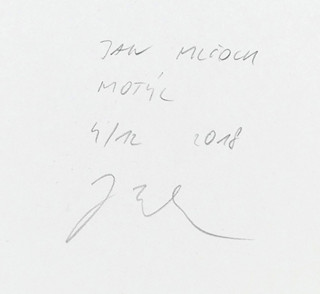 JAN MLČOCH
MOTÝL
4/12 2018